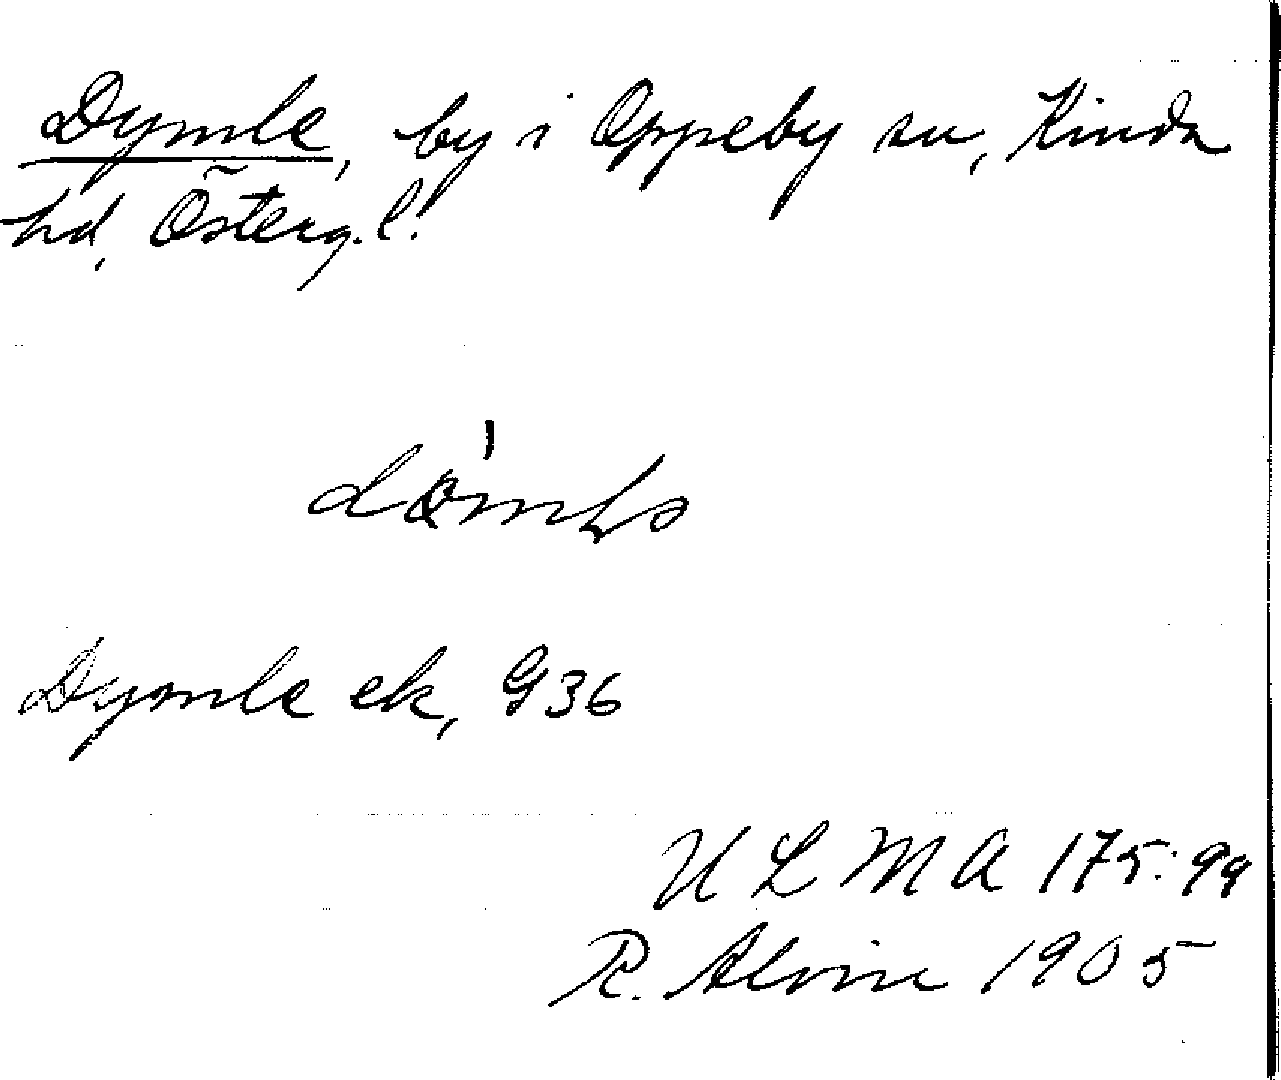 Dymle, by i Oppeby sn, Kinda
hd, Österg. l.
Dymle ek, G36
ULMA 175:99
R. Alvin 1905